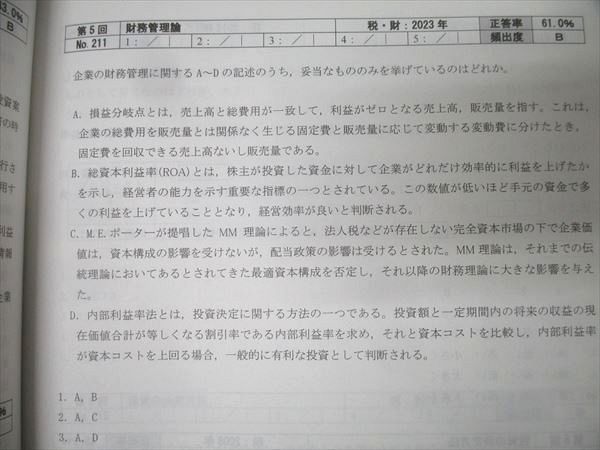 3.0%
B
第5回 財務管理論 税・財：2023年 正答率 61.0%
No.211 1：／ 2：／ 3：／ 4：／ 5：／ 頻出度 B
企業の財務管理に関するA～Dの記述のうち，妥当なもののみを挙げているのはどれか。
A．損益分岐点とは，売上高と総費用が一致して，利益がゼロとなる売上高，販売量を指す。これは，
企業の総費用を販売量とは関係なく生じる固定費と販売量に応じて変動する変動費に分けたとき，
固定費を回収できる売上高ないし販売量である。
B．総資本利益率(ROA)とは，株主が投資した資金に対して企業がどれだけ効率的に利益を上げたか
を示し，経営者の能力を示す重要な指標の一つとされている。この数値が低いほど手元の資金で多
くの利益を上げていることとなり，経営効率が良いと判断される。
C．M.E.ポーターが提唱した MM 理論によると，法人税などが存在しない完全資本市場の下で企業価
値は，資本構成の影響を受けないが，配当政策の影響は受けるとされた。MM 理論は，それまでの伝
統理論においてあるとされてきた最適資本構成を否定し，それ以降の財務理論に大きな影響を与え
た。
D．内部利益率法とは，投資決定に関する方法の一つである。投資額と一定期間内の将来の収益の現
在価値合計が等しくなる割引率である内部利益率を求め，それと資本コストを比較し，内部利益率
が資本コストを上回る場合，一般的に有利な投資として判断される。
1．A，B
2．A，C
3．A，D